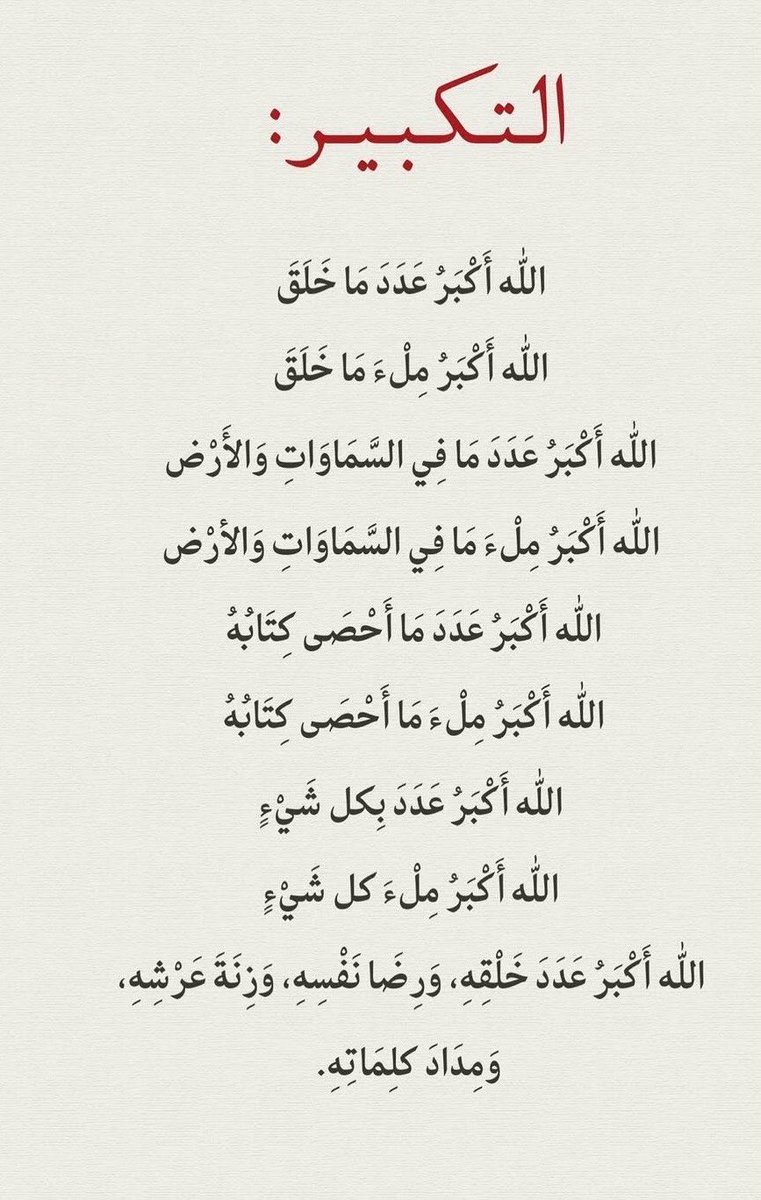 التكبير:
اللّٰه أَكْبَرُ عَدَدَ مَا خَلَقَ
اللّٰه أَكْبَرُ مِلْءَ مَا خَلَقَ
اللّٰه أَكْبَرُ عَدَدَ مَا فِي السَّمَاوَاتِ وَالأَرْض
اللّٰه أَكْبَرُ مِلْءَ مَا فِي السَّمَاوَاتِ وَالأرْض
اللّٰه أَكْبَرُ عَدَدَ مَا أَحْصَى كِتَابُهُ
اللّٰه أَكْبَرُ مِلْءَ مَا أَحْصَى كِتَابُهُ
اللّٰه أَكْبَرُ عَدَدَ بِكل شَيْءٍ
اللّٰه أَكْبَرُ مِلْءَ كل شَيْءٍ
اللّٰه أَكْبَرُ عَدَدَ خَلْقِهِ، وَرِضَا نَفْسِهِ، وَزِنَةَ عَرْشِهِ،
وَمِدَادَ كلِمَاتِهِ.